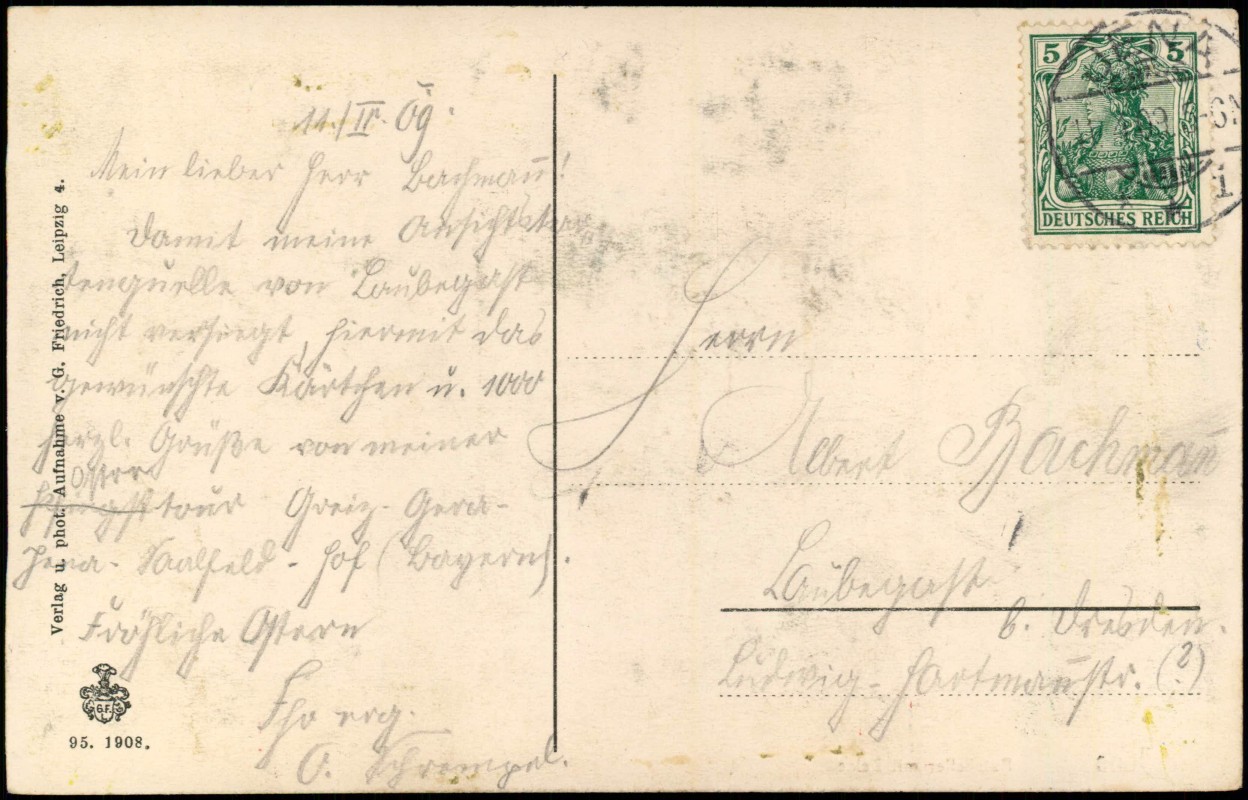 11./IV. 09.
Mein lieber Herr Bachmañ!
Damit meine Ansichtskar-
tenquelle von Laubegast
nicht versiegt, hiermit das
gewünschte Kärtchen u. 1000
herzl. Grüße von meiner
Oster
Pfingsttour Greiz-Gera-
Jena-Saalfeld-Hof (Bayern).
Fröhliche Ostern
Ihr erg.
O. Schrempel.
Verlag u. phot. Aufnahme v. G. Friedrich, Leipzig 4.
G.F.
L.
95. 1908.
5 5
DEUTSCHES REICH
JENA
Herrn
Albert Bachmañ
Laubegast
b. Dresden.
Ludwig-Hartmañstr. (?)